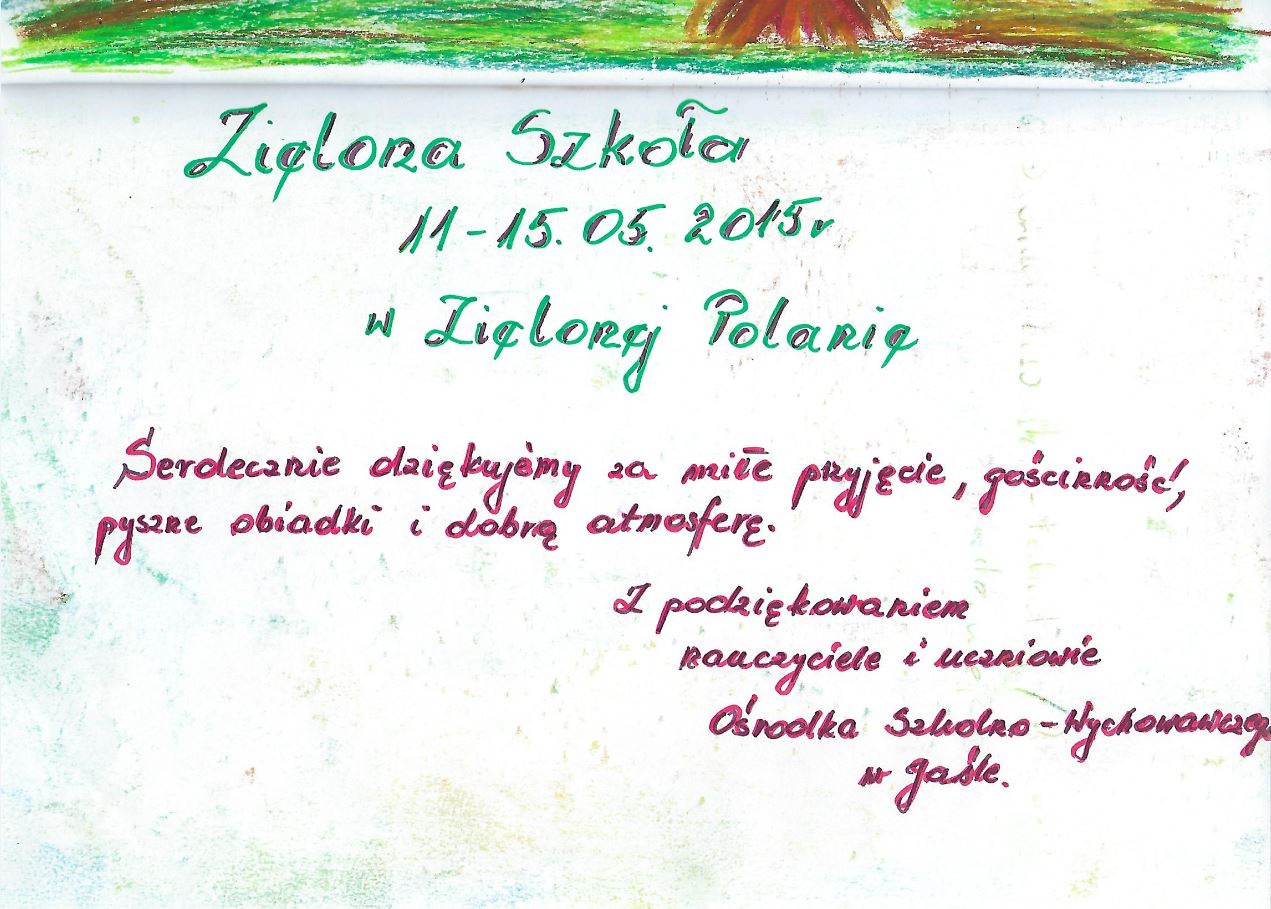 Zielona Szkoła
11-15.05.2015r
w Zielonej Polanie
Serdecznie dziękujemy za miłe przyjęcie, gościnność,
pyszne obiadki i dobrą atmosferę.
Z podziękowaniem
nauczyciele i uczniowie
Ośrodka Szkolno-Wychowawczego
w Jaśle.